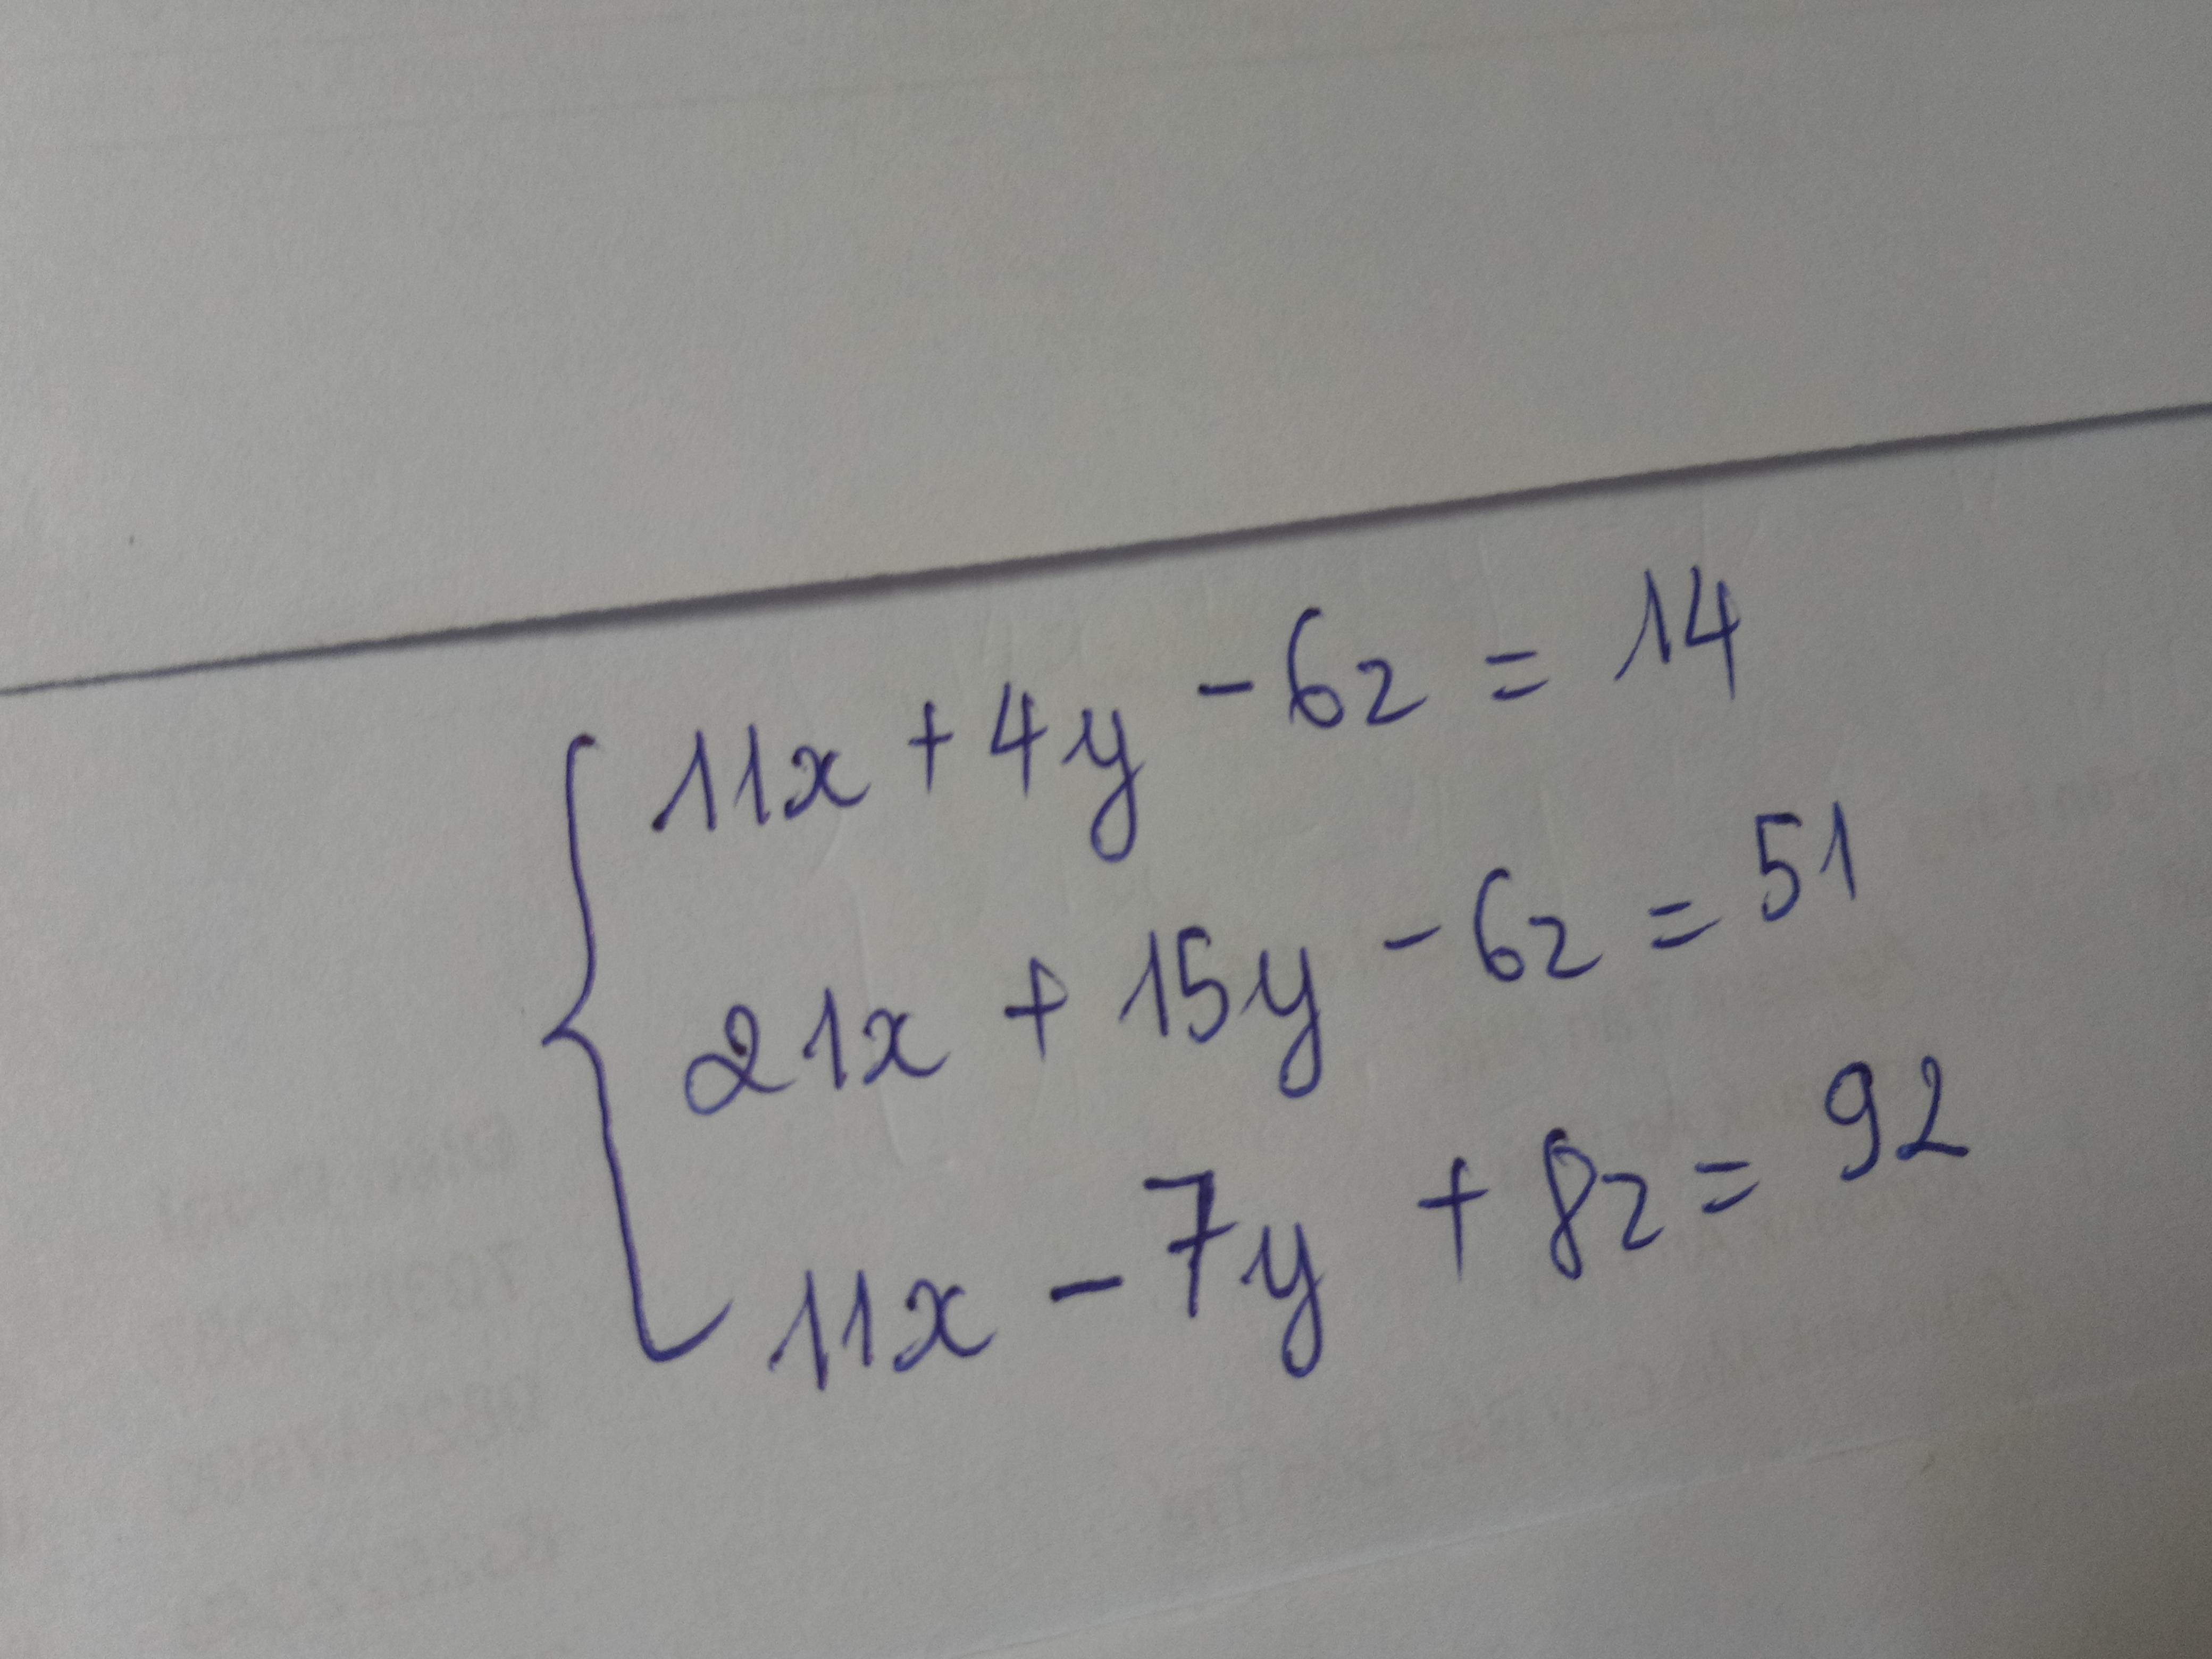 11x + 4y - 6z = 14
21x + 15y - 6z = 51
11x - 7y + 8z = 92